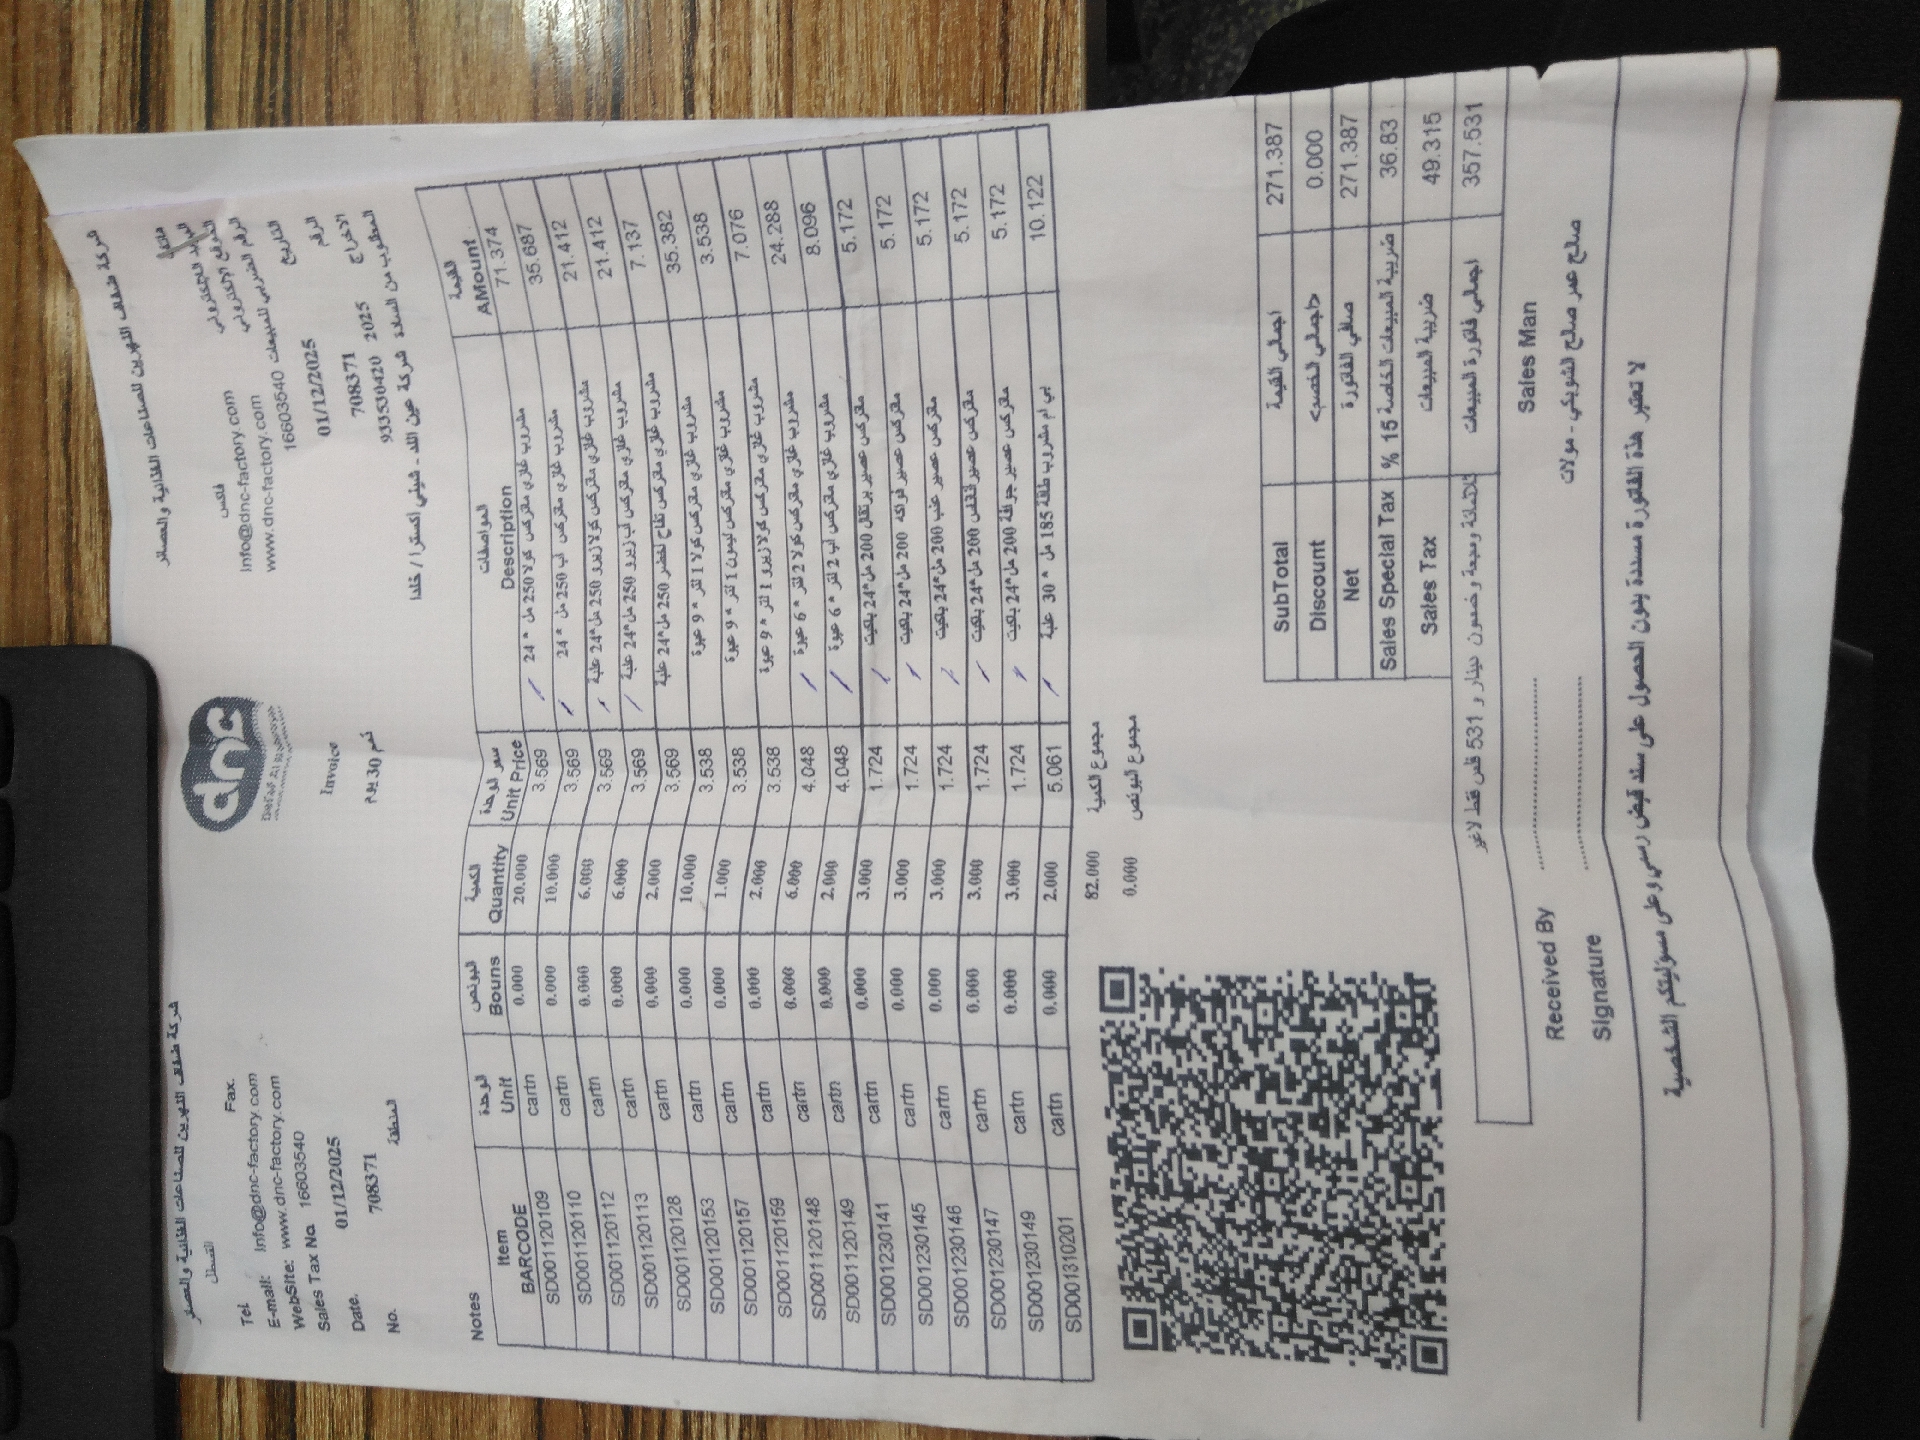 شركة ضفاف النهرين للصناعات الغذائية والعصائر
شركة ضفاف النهرين للصناعات الغذائية والعصائر
dnc
Tel.
Fax.
فاكس
هاتف
E-mail: Info@dnc-factory.com
Info@dnc-factory.com البريد الالكتروني
WebSite: www.dnc-factory.com
www.dnc-factory.com الموقع الالكتروني
Sales Tax No 16603540
16603540 الرقم الضريبي للمبيعات
Invoice
Date. 01/12/2025
01/12/2025 التاريخ
708371
708371 الرقم
ذمم 30 يوم
No.
المنطقة
933530420 2025 الاخراج
المطلوب من السادة شركة عين الله - ميني اكسترا / خلدا
Notes
Item الوحدة البونص الكمية سعر الوحدة المواصفات القيمة
BARCODE Unit Bouns Quantity Unit Price Description AMount
SD001120109 cartn 0.000 20.000 3.569 مشروب غازي متركس كولا 250 مل * 24 71.374
SD001120110 cartn 0.000 10.000 3.569 مشروب غازي متركس اب 250 مل * 24 35.687
SD001120112 cartn 0.000 6.000 3.569 مشروب غازي متركس كولا زيرو 250 مل*24 علبة 21.412
SD001120113 cartn 0.000 6.000 3.569 مشروب غازي متركس اب زيرو 250 مل*24 علبة 21.412
SD001120128 cartn 0.000 2.000 3.569 مشروب غازي متركس تفاح اخضر 250 مل*24 علبة 7.137
SD001120153 cartn 0.000 10.000 3.538 مشروب غازي متركس كولا 1 لتر * 9 عبوة 35.382
SD001120157 cartn 0.000 1.000 3.538 مشروب غازي متركس ليمون 1 لتر * 9 عبوة 3.538
SD001120159 cartn 0.000 2.000 3.538 مشروب غازي متركس كولا زيرو 1 لتر * 9 عبوة 7.076
SD001120148 cartn 0.000 6.000 4.048 مشروب غازي متركس كولا 2 لتر * 6 عبوة 24.288
SD001120149 cartn 0.000 2.000 4.048 مشروب غازي متركس اب 2 لتر * 6 عبوة 8.096
SD001230141 cartn 0.000 3.000 1.724 متركس عصير برتقال 200 مل*24 باكيت 5.172
SD001230145 cartn 0.000 3.000 1.724 متركس عصير فواكه 200 مل*24 باكيت 5.172
SD001230146 cartn 0.000 3.000 1.724 متركس عصير عنب 200 مل*24 باكيت 5.172
SD001230147 cartn 0.000 3.000 1.724 متركس عصير اناناس 200 مل*24 باكيت 5.172
SD001230149 cartn 0.000 3.000 1.724 متركس عصير جوافة 200 مل*24 باكيت 5.172
SD001310201 cartn 0.000 2.000 5.061 بي ام مشروب طاقة 185 مل * 30 علبة 10.122
82.000 مجموع الكمية
0.000 مجموع البونص
SubTotal اجمالي القيمة 271.387
Discount اجمالي الخصم 0.000
Net صافي الفاتورة 271.387
Sales Special Tax ضريبة المبيعات الخاصة 15 % 36.83
Sales Tax ضريبة المبيعات 49.315
ثلاثمائة وسبعة وخمسون دينار و 531 فلس فقط لاغير اجمالي فاتورة المبيعات 357.531
Received By
Sales Man
Signature
صالح عمر صالح الشويكي - مولات
لا تعتبر هذة الفاتورة مسددة بدون الحصول على سند قبض رسمي وعلى مسؤليتكم الشخصية